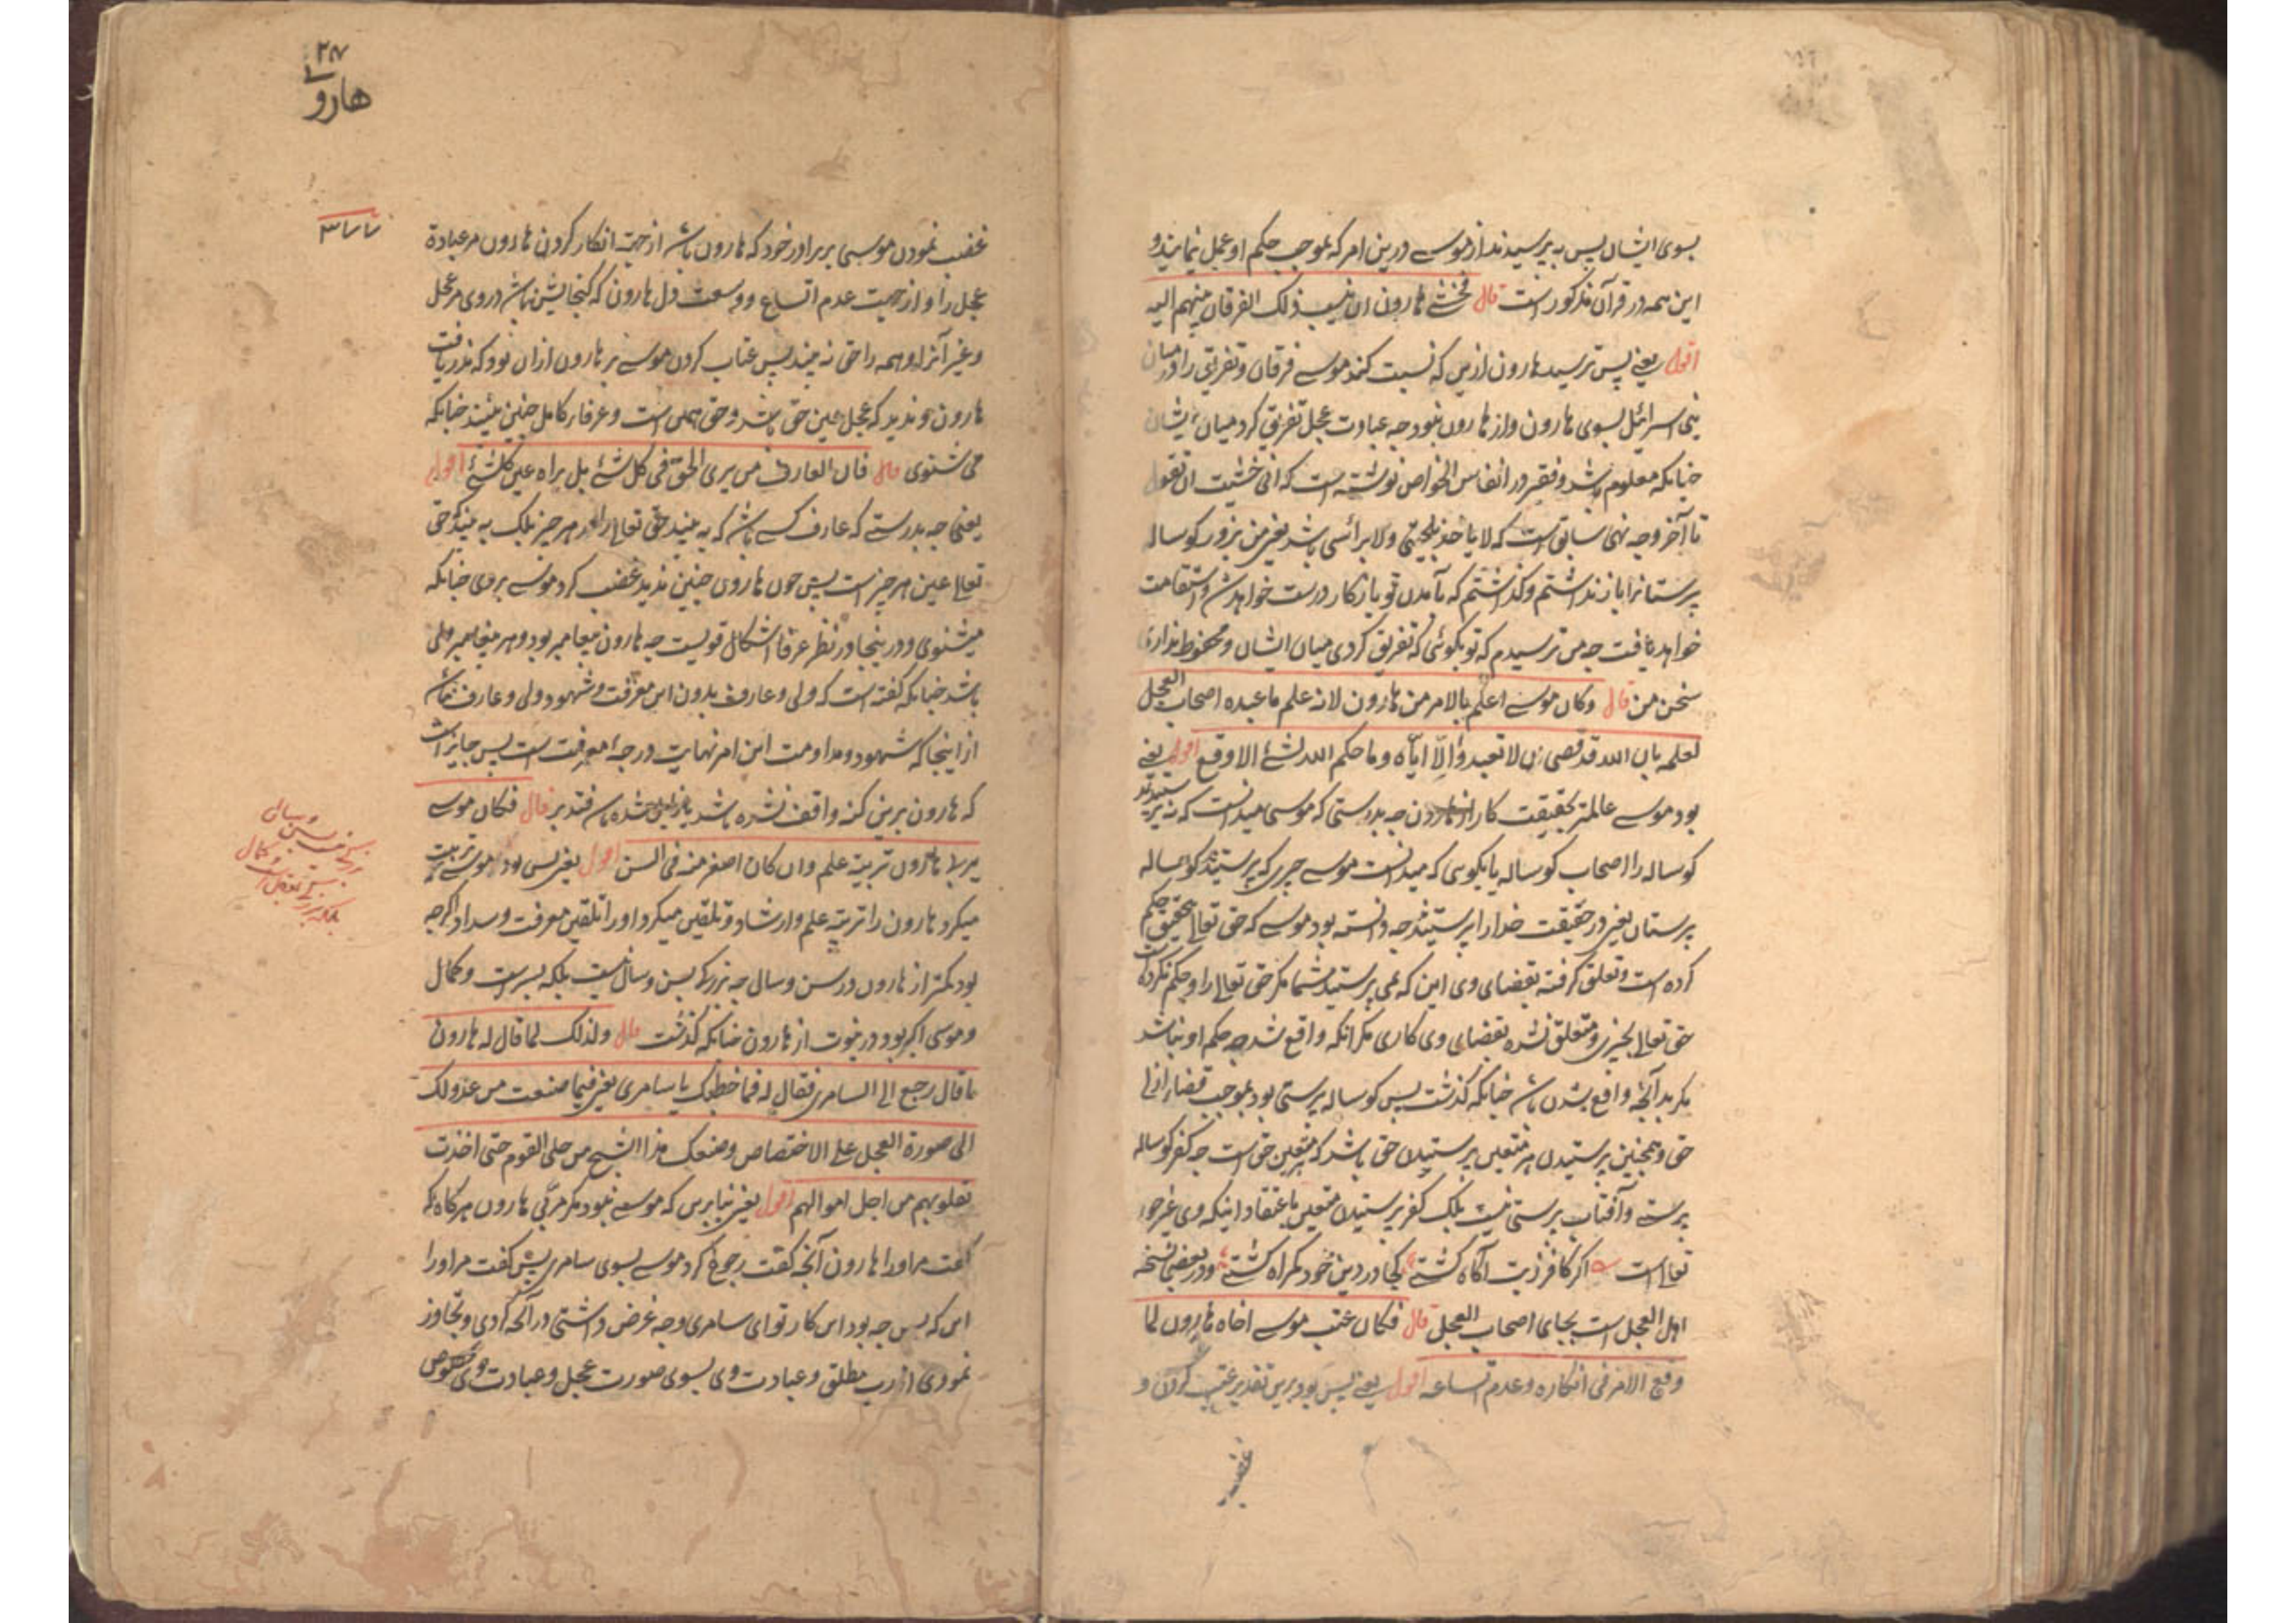 بسوی ایشان پس به پرسیدند از موسے درین امر که بموجب حکم او عمل نمایند و
این همه در قرآن مذکور است قال فخشے هارون ان ینسب ذلک الفرقان بینهم الیه
اقول یعنے پس ترسید هارون ازین که نسبت کند موسے فرقان و تفریق را درمیان
بنی اسرائیل بسوی هارون و از هارون نبود چه عبادت عجل تفریق کرد میان ایشان
چنانکه معلوم شد و فقیر در انفاس الخواص نوشته است که انی خشیت ان تقول
تا آخر وجه نهی سابق است که لا تاخذ بلحیتی ولا براسی باشد یعنے من بزور کوساله
پرستانرا باز نداشتم و گذاشتم که بآمدن تو باز کار درست خواهد شد و استقامت
خواهد یافت چه من ترسیدم که تو بگوئی که تفریق کردی میان ایشان و محفوظ نداری
سخن من قال وکان موسے اعلم بالامر من هارون لانه علم ما عبده اصحاب العجل
لعلمه بان الله قد قضی ان لا تعبدوا الا ایاه وما حکم الله بشئ الا وقع اقول یعنے
بود موسے عالمتر بحقیقت کار از هارون چه بدرستی که موسی میدانست که نه پرستیدند
کوساله را اصحاب کوساله یا بگوسی که میدانست موسے چیزی که پرستیدند کوساله
پرستان یعنے در حقیقت خدا را پرستیدند چه دانسته بود موسے که حق تعالے بتحقیق حکم
کرده است و تعلق گرفته بقضای وی این که نمی پرستید شما مگر حق تعالے را و حکم نکرده است
حق تعالے بچیزی و متعلق نشده بقضای وی کاری مگر آنکه واقع شد چه حکم او نباشد
مگر بدآنچه واقع بشدن باشد چنانکه گذشت پس کوساله پرستی بود بموجب قضاء ازلی
حق و همچنین پرستیدن هر متعین پرستیدن حق باشد که هر متعین حق است چه کفر کوساله
پرستے و آفتاب پرستی نیست بلک کفر پرستیدن متعین باعتقاد اینکه وی غیر حق
تعالے است اگر کافر ز بت آگاه گشتے کجا در دین خود گمراه گشتے و در بعضی نسخه
اهل العجل است بجای اصحاب العجل قال فکان عتب موسے اخاه هارون لما
وقع الامر فی انکاره وعدم اتساعه اقول یعنے پس بود برین تقدیر عتب کردن و
غضب
۲۸۷
هارونے
غضب نمودن موسی بر برادر خود که هارون باشد از جهت انکار کردن هارون مر عبادة
عجل را و از جهت عدم اتساع و وسعت دل هارون که گنجایش نباشد در وی مر عجل
و غیر آنرا و همه را حق نه بیند پس عتاب کردن موسے بر هارون ازان بود که ندریافت
هارون و ندید که عجل عین حق باشد و حق همان است و عرفاء کامل چنین بینند چنانکه
می شنوی قال فان العارف من یری الحق فی کل شئ بل یراه عین کل شئ اقول
یعنی چه بدرستے که عارف کسے باشد که به بیند حق تعالے را در هر چیز بلک به بیند حق
تعالے عین هر چیز است پس چون هارون چنین ندید غضب کرد موسے بر وی چنانکه
میشنوی و درینجا در نظر عرفا اشکال قویست چه هارون پیغامبر بود و هر پیغامبر ولی
باشد چنانکه گفته است که ولی و عارف بدون این معرفت و شهود ولی و عارف نباشد
از اینجا که شهود و مداومت این امر نهایت درجهٔ معرفت است پس جایز است
که هارون برین کنه واقف نشده باشد فتدبر قال فکان موسے
یربی هارون تربیة علم وان کان اصغر منه فی السن اقول یعنے پس بود موسے تربیت
میکرد هارون را تربیة علم و ارشاد و تلقین میکرد او را تلقین معرفت و سداد اگرچه
بود کمتر از هارون در سن و سالی چه بزرگے بسن و سال نیست بلکه بسر است و کمال
و موسی اکبر بود در نبوت از هارون چنانکه گذشت قال ولذلک لما قال له هارون
ما قال رجع الی السامری فقال له فما خطبک یا سامری یعنے فیما صنعت من عدولک
الی صورة العجل علی الاختصاص وصنعک هذا الشبح من حلی القوم حتی اخذت
بقلوبهم من اجل اموالهم اقول یعنے بنابرین که موسے نبود مگر مربی هارون هرگاه که
گفت مر او را هارون آنچه گفت رجوع کرد موسے بسوی سامری پس گفت مر او را
این که پس چه بود این کار تو ای سامری و چه غرض داشتی در آنچه کردی و تجاوز
نمودی از رب مطلق و عبادت وی بسوی صورت عجل و عبادت وی مخصوص